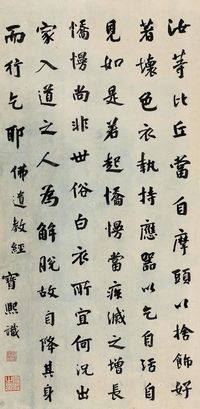 汝等比丘當自摩頭以捨飾好
著壞色衣執持應器以乞自活自
見如是若起憍慢當疾滅之增長
憍慢尚非世俗白衣所宜何況出
家入道之人為解脫故自降其身
而行乞耶 佛遺教經 寶熙識